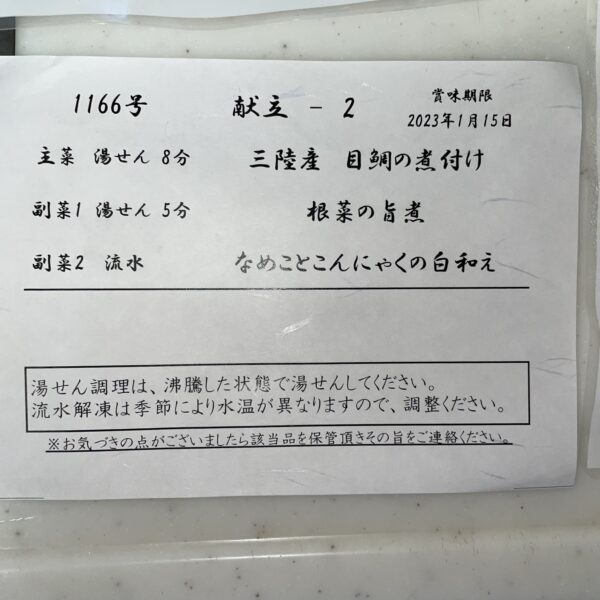 1166号 献立 － 2 賞味期限
2023年1月15日
主菜 湯せん 8分 三陸産 目鯛の煮付け
副菜1 湯せん 5分 根菜の旨煮
副菜2 流水 なめことこんにゃくの白和え
湯せん調理は、沸騰した状態で湯せんしてください。
流水解凍は季節により水温が異なりますので、調整ください。
※お気づきの点がございましたら該当品を保管頂きその旨をご連絡ください。